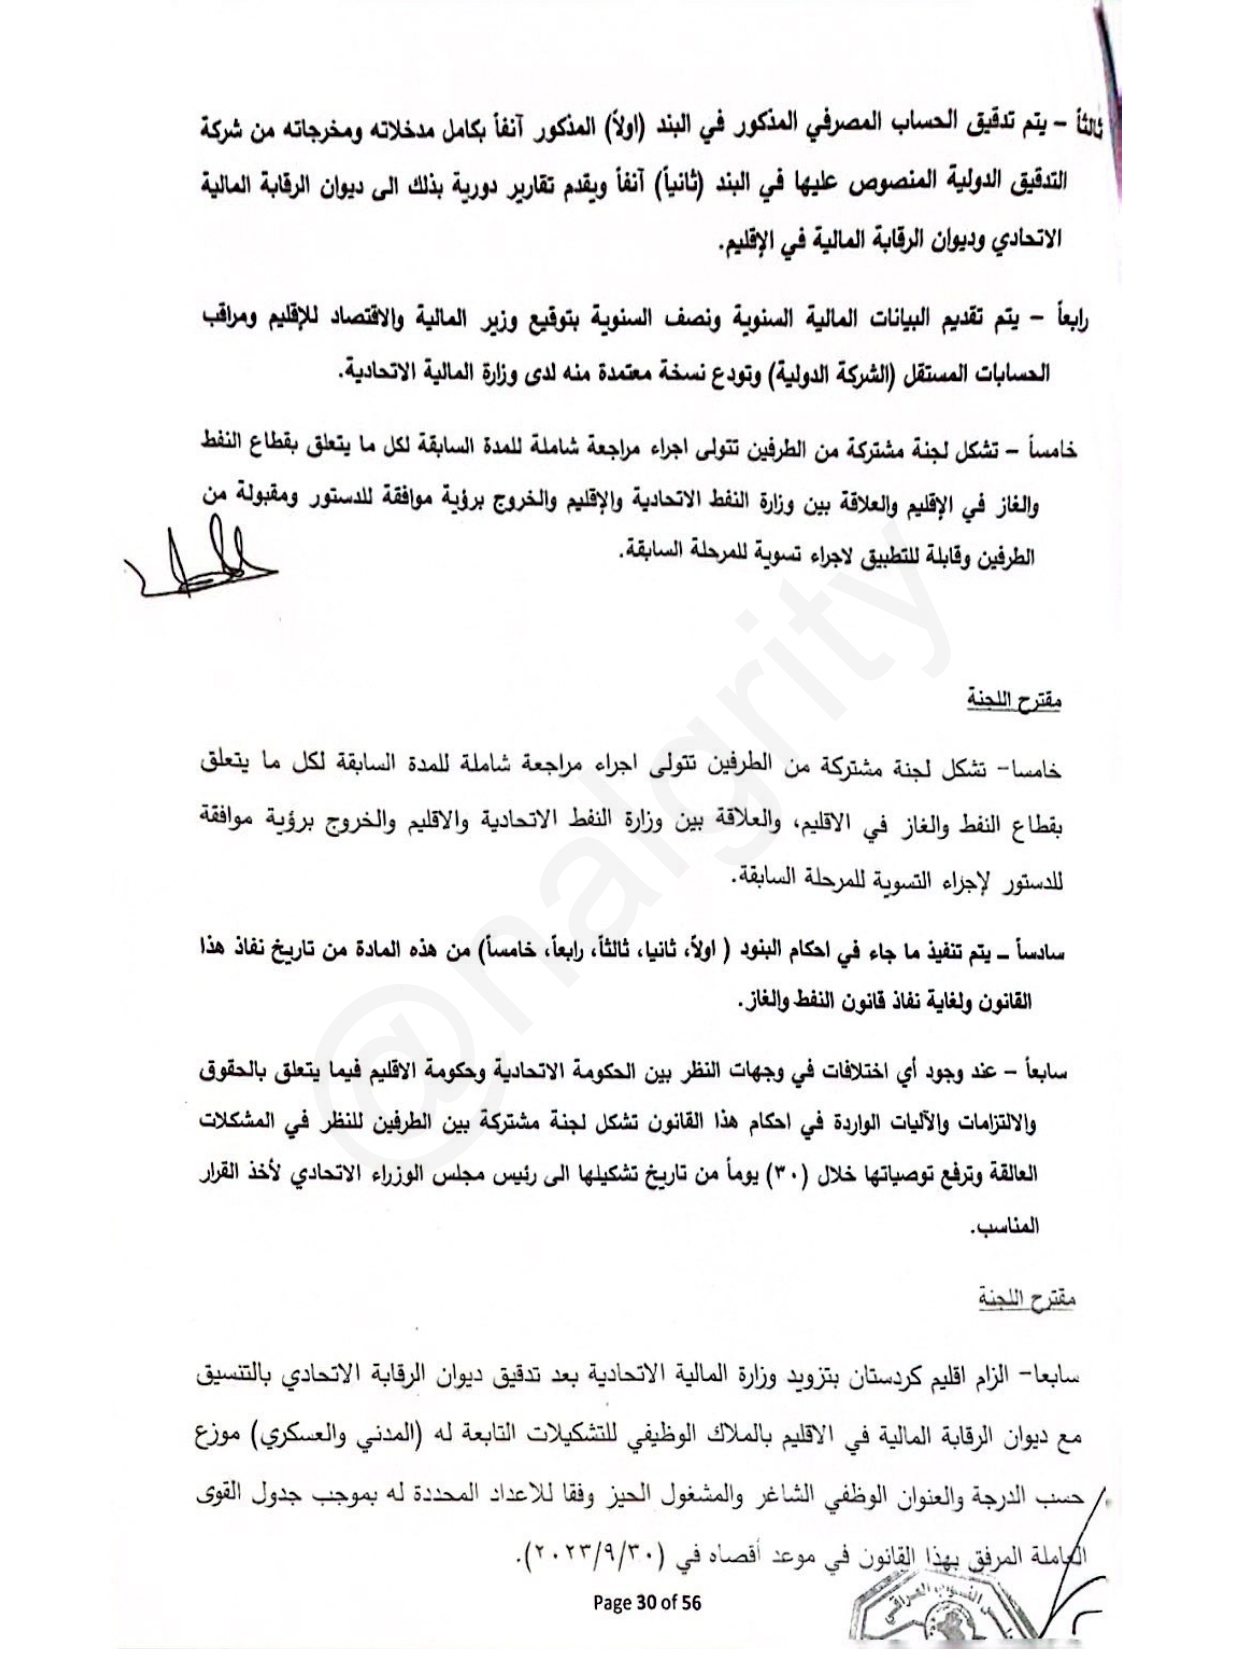 ثالثاً – يتم تدقيق الحساب المصرفي المذكور في البند (اولاً) المذكور آنفاً بكامل مدخلاته ومخرجاته من شركة
التدقيق الدولية المنصوص عليها في البند (ثانياً) آنفاً ويقدم تقارير دورية بذلك الى ديوان الرقابة المالية
الاتحادي وديوان الرقابة المالية في الإقليم.
رابعاً – يتم تقديم البيانات المالية السنوية ونصف السنوية بتوقيع وزير المالية والاقتصاد للإقليم ومراقب
الحسابات المستقل (الشركة الدولية) وتودع نسخة معتمدة منه لدى وزارة المالية الاتحادية.
خامساً – تشكل لجنة مشتركة من الطرفين تتولى اجراء مراجعة شاملة للمدة السابقة لكل ما يتعلق بقطاع النفط
والغاز في الإقليم والعلاقة بين وزارة النفط الاتحادية والإقليم والخروج برؤية موافقة للدستور ومقبولة من
الطرفين وقابلة للتطبيق لاجراء تسوية للمرحلة السابقة.
مقترح اللجنة
خامسا- تشكل لجنة مشتركة من الطرفين تتولى اجراء مراجعة شاملة للمدة السابقة لكل ما يتعلق
بقطاع النفط والغاز في الاقليم، والعلاقة بين وزارة النفط الاتحادية والاقليم والخروج برؤية موافقة
للدستور لإجراء التسوية للمرحلة السابقة.
سادساً ـ يتم تنفيذ ما جاء في احكام البنود ( اولاً، ثانيا، ثالثاً، رابعاً، خامساً) من هذه المادة من تاريخ نفاذ هذا
القانون ولغاية نفاذ قانون النفط والغاز.
سابعاً – عند وجود أي اختلافات في وجهات النظر بين الحكومة الاتحادية وحكومة الاقليم فيما يتعلق بالحقوق
والالتزامات والآليات الواردة في احكام هذا القانون تشكل لجنة مشتركة بين الطرفين للنظر في المشكلات
العالقة وترفع توصياتها خلال (٣٠) يوماً من تاريخ تشكيلها الى رئيس مجلس الوزراء الاتحادي لأخذ القرار
المناسب.
مقترح اللجنة
سابعا- الزام اقليم كردستان بتزويد وزارة المالية الاتحادية بعد تدقيق ديوان الرقابة الاتحادي بالتنسيق
مع ديوان الرقابة المالية في الاقليم بالملاك الوظيفي للتشكيلات التابعة له (المدني والعسكري) موزع
حسب الدرجة والعنوان الوظيفي الشاغر والمشغول الحيز وفقا للاعداد المحددة له بموجب جدول القوى
العاملة المرفق بهذا القانون في موعد أقصاه في (٢٠٢٣/٩/٣٠).
Page 30 of 56
النواب العراقي
@nalgrity